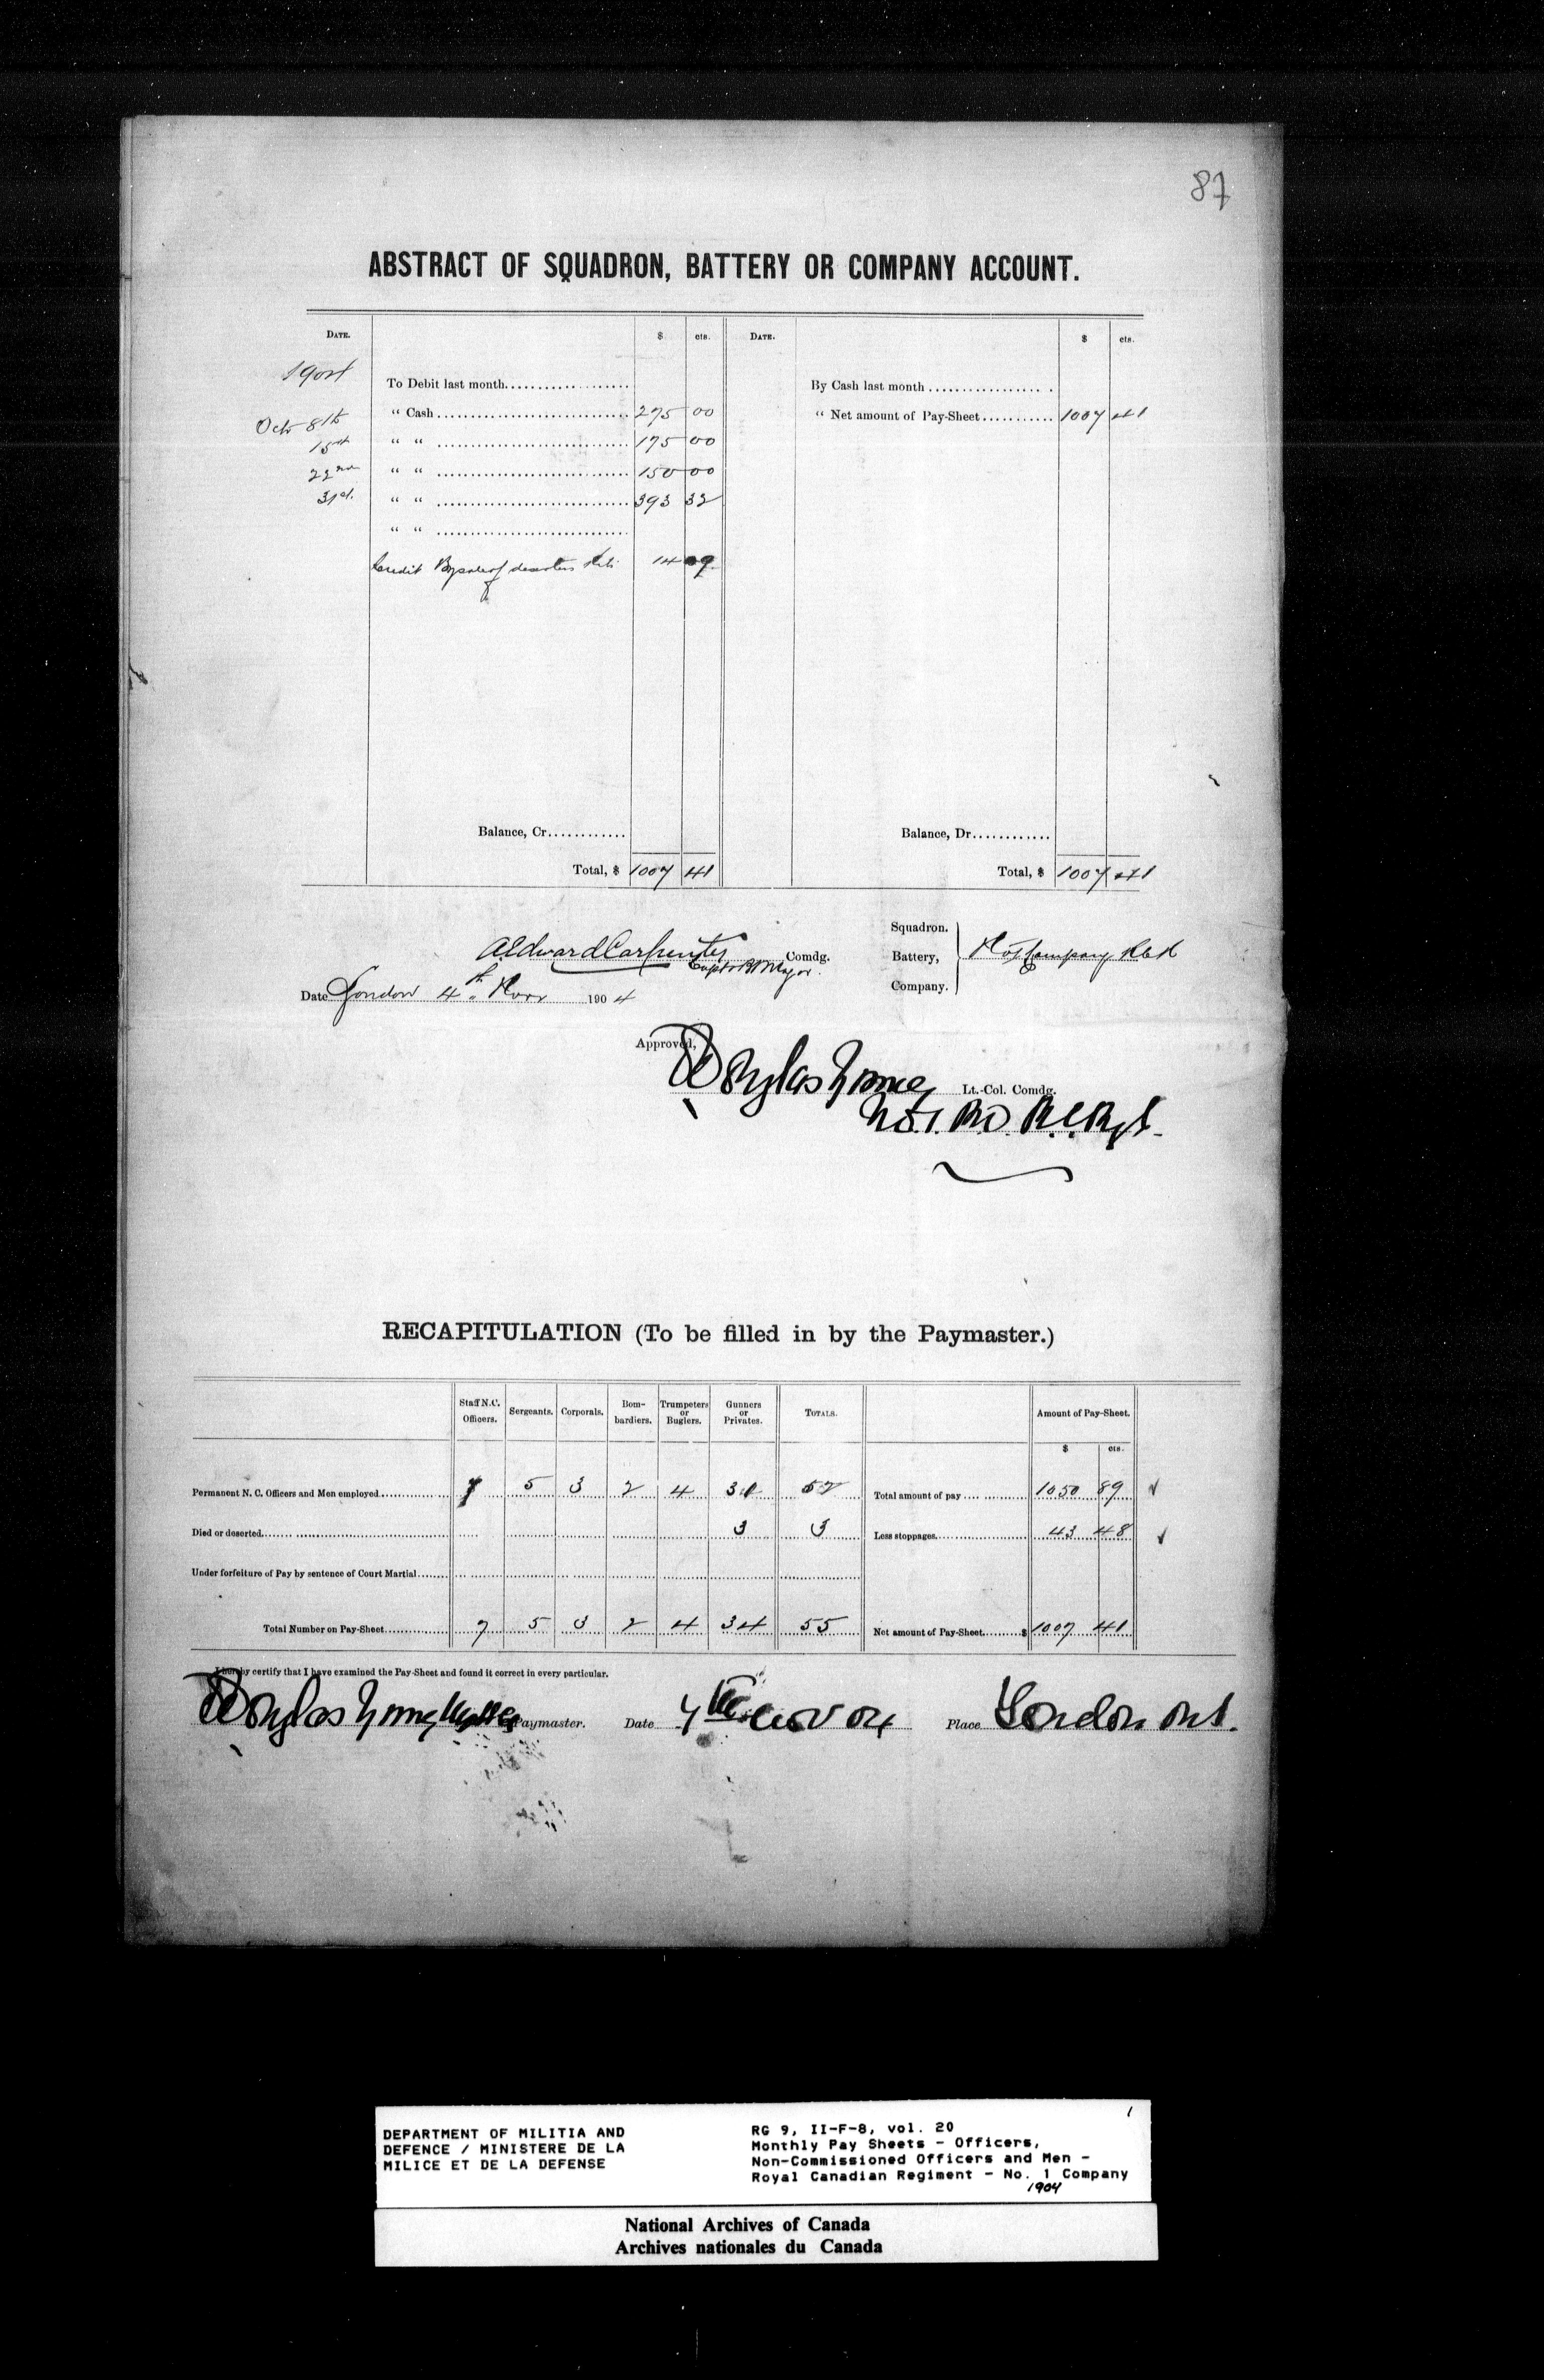 87
ABSTRACT OF SQUADRON, BATTERY OR COMPANY ACCOUNT.
DATE. $ cts. DATE. $ cts.
1904
To Debit last month By Cash last month
Oct 8th " Cash 275 00 " Net amount of Pay-Sheet 1007 41
15th " " 175 00
22nd " " 150 00
31st. " " 393 32
" "
Credit By sale of deserters 14 09
Balance, Cr. Balance, Dr.
Total, $ 1007 41 Total, $ 1007 41
Squadron.
AEdward Carpenter Comdg. Battery, No 1 Company RCR
Capt & Bt Major.
Company.
Date London 4th Nov 1904
Approved,
Douglas Young Lt.-Col. Comdg.
No. 1. R.D. R.C.Rgt.
RECAPITULATION (To be filled in by the Paymaster.)
Staff N.C. Officers. Sergeants. Corporals. Bombardiers. Trumpeters or Buglers. Gunners or Privates. TOTALS. Amount of Pay-Sheet.
$ cts.
Permanent N. C. Officers and Men employed 7 5 3 2 4 31 52 Total amount of pay 1050 89
Died or deserted 3 3 Less stoppages 43 48
Under forfeiture of Pay by sentence of Court Martial
Total Number on Pay-Sheet 7 5 3 2 4 34 55 Net amount of Pay-Sheet $ 1007 41
I hereby certify that I have examined the Pay-Sheet and found it correct in every particular.
Douglas Young Paymaster. Date 4th Nov 04 Place London Ont.
1
DEPARTMENT OF MILITIA AND
DEFENCE / MINISTERE DE LA
MILICE ET DE LA DEFENSE
RG 9, II-F-8, vol. 20
Monthly Pay Sheets - Officers,
Non-Commissioned Officers and Men -
Royal Canadian Regiment - No. 1 Company
1904
National Archives of Canada
Archives nationales du Canada